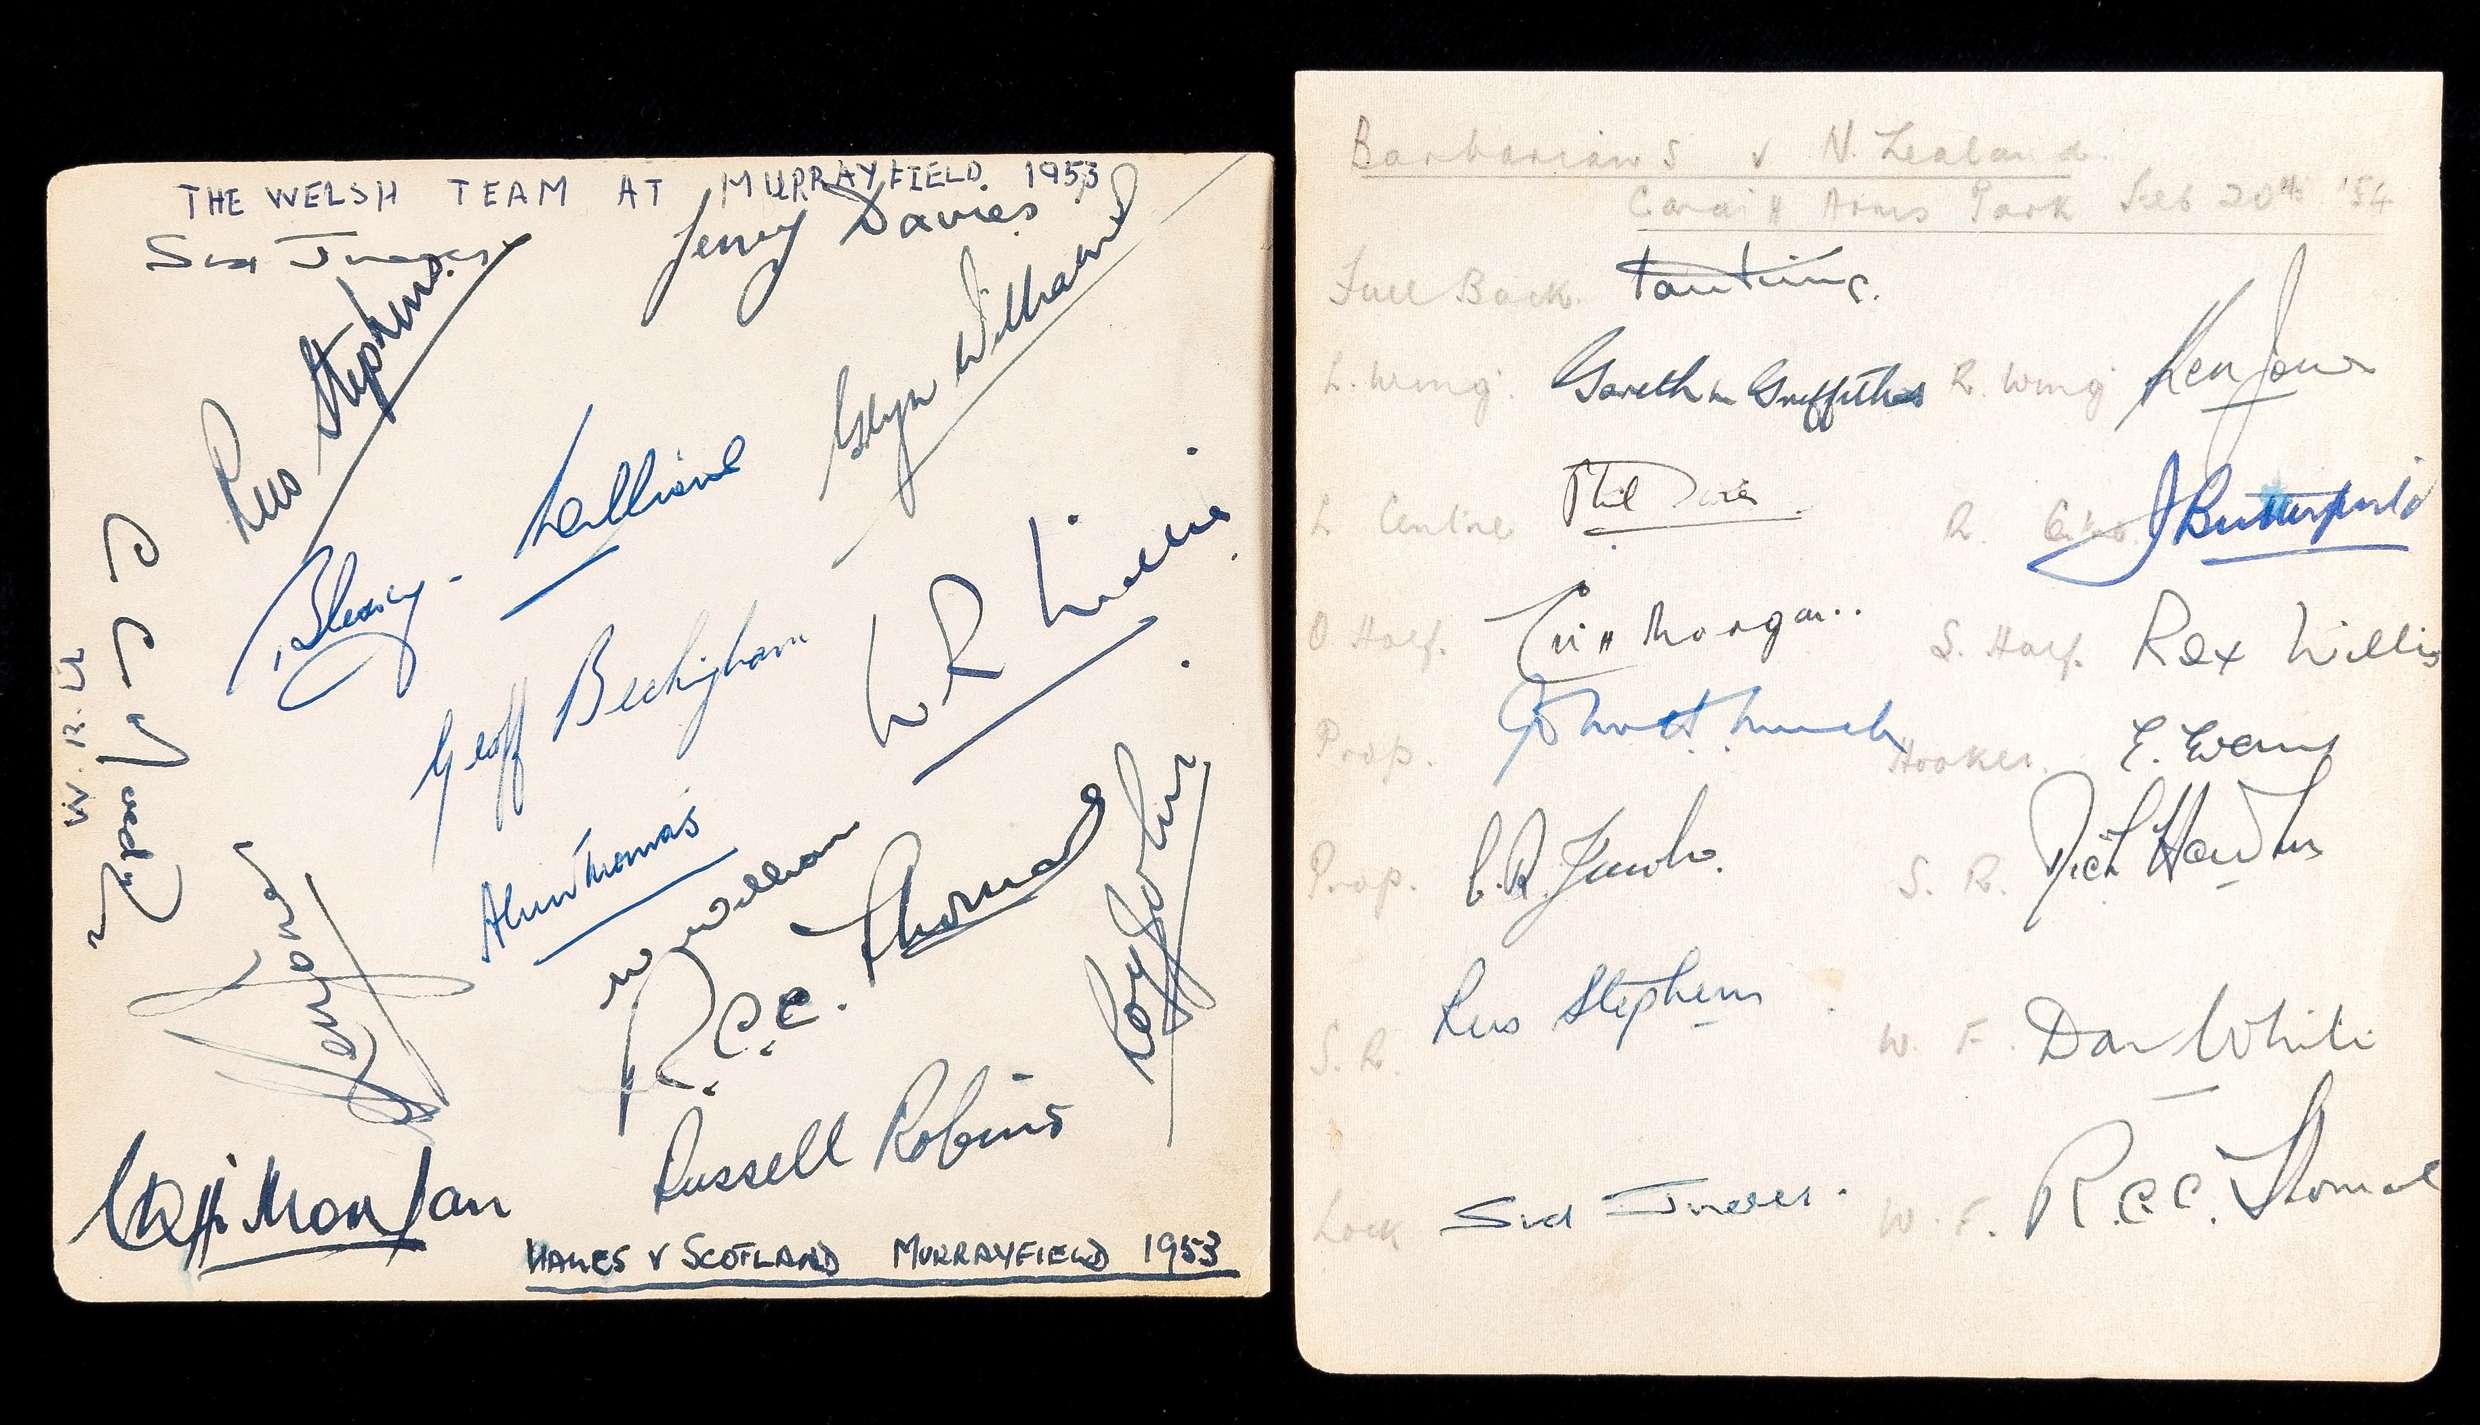 THE WELSH TEAM AT MURRAYFIELD. 1953
Terry Davies
Rees Stephens.
Glyn Williams
Bleddyn Williams
W. R. U.
Geoff Beckingham
W R Willis
Alun Thomas
W O Williams
R.C.C. Thomas
Roy John
Ken Jones
Russell Robins
Cliff Morgan
WALES V SCOTLAND MURRAYFIELD 1953
Barbarians v N. Zealand.
Cardiff Arms Park Feb 20th '54
Full Back. Ian King.
L. Wing. Gareth Griffiths R. Wing Ken Jones
L Centre Phil Davies. R. Centre J Butterfield
O Half. Cliff Morgan.. S. Half. Rex Willis
Prop. Hooker. E. Evans
Prop. C.R. Jacobs. S. R. Dick Hawkes
S. R. Rees Stephens W. F. Don White
Lock Sid W. F. R.C.C. Thomas